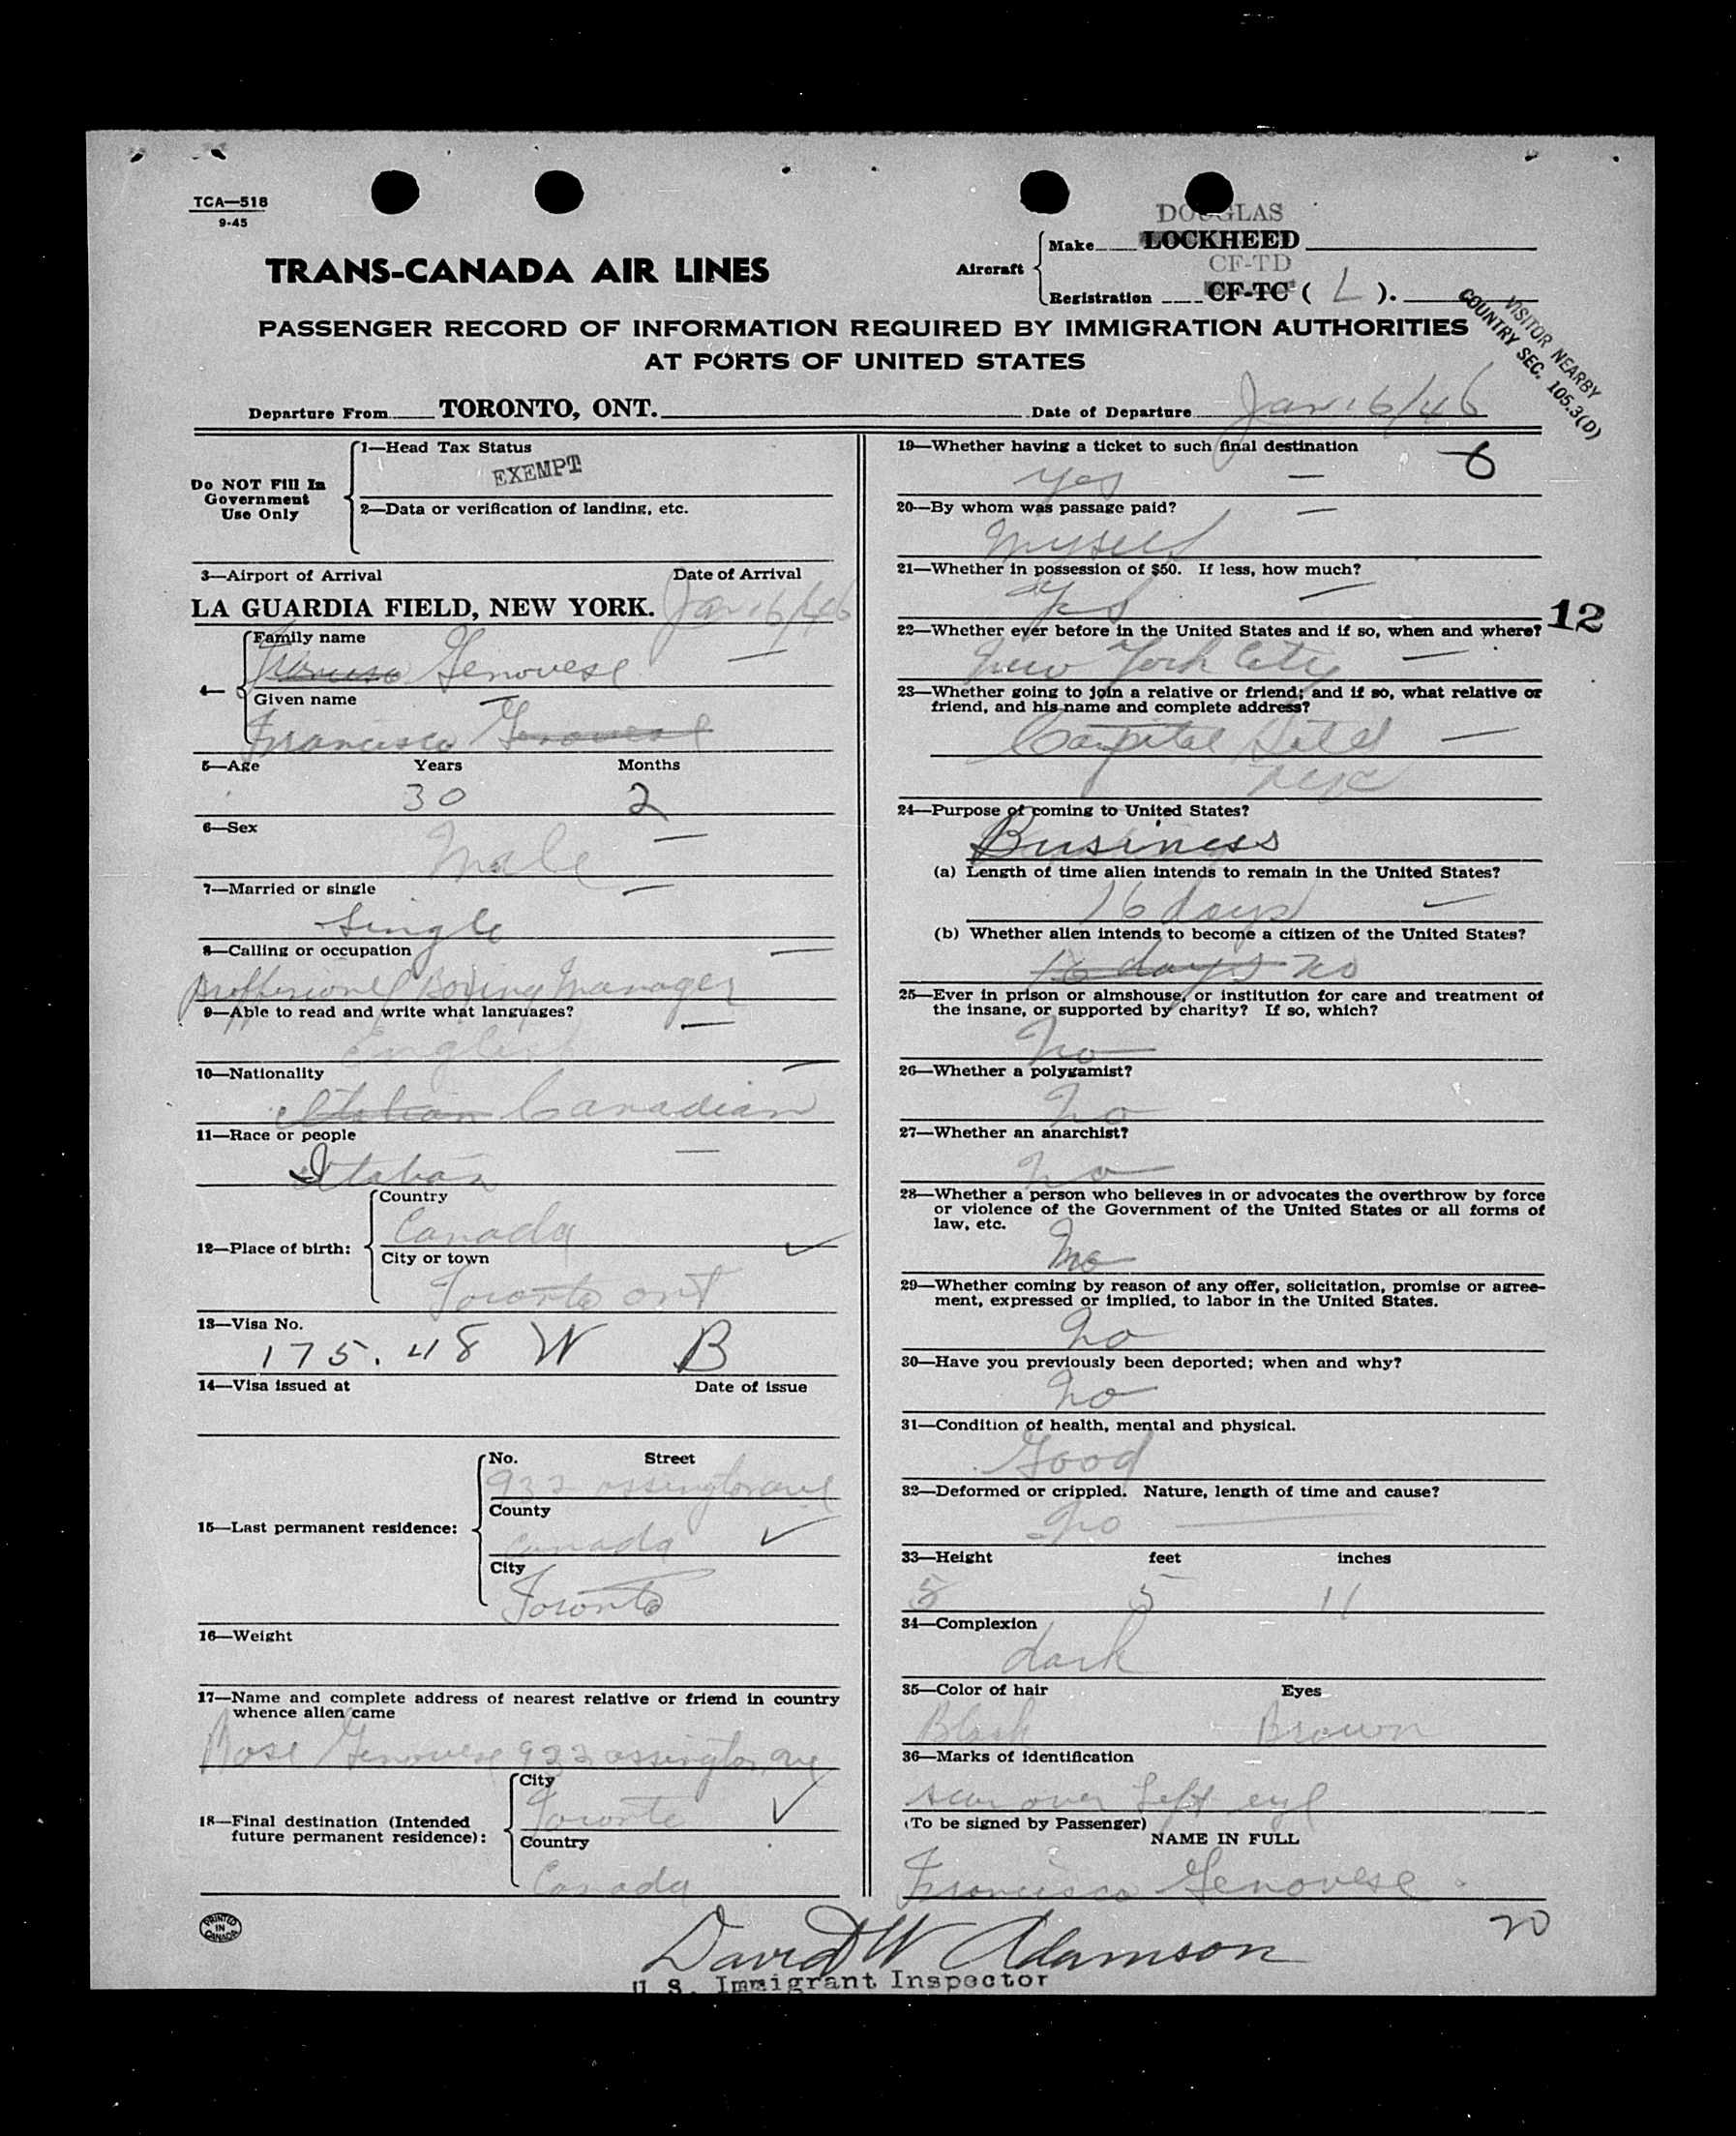 TCA—518
9-45
TRANS-CANADA AIR LINES
DOUGLAS
Aircraft
Make LOCKHEED
CF-TD
Registration CF-TC ( L ).
PASSENGER RECORD OF INFORMATION REQUIRED BY IMMIGRATION AUTHORITIES
AT PORTS OF UNITED STATES
VISITOR NEARBY
COUNTRY SEC. 105.3(D)
Departure From TORONTO, ONT. Date of Departure Jan 16/46
Do NOT Fill In
Government
Use Only
1—Head Tax Status
EXEMPT
2—Data or verification of landing, etc.
3—Airport of Arrival Date of Arrival
LA GUARDIA FIELD, NEW YORK. Jan 16/46
4—
Family name
Genovese
Given name
Francisco Genovese
5—Age Years Months
30 2
6—Sex
Male
7—Married or single
Single
8—Calling or occupation
Boxing Manager
9—Able to read and write what languages?
English
10—Nationality
Italian Canadian
11—Race or people
Italian
12—Place of birth:
Country
Canada
City or town
Toronto ont
13—Visa No.
175.48 W B
14—Visa issued at Date of issue
15—Last permanent residence:
No. Street
932 ossington ave
County
Canada
City
Toronto
16—Weight
17—Name and complete address of nearest relative or friend in country
whence alien came
Rose Genovese 932 ossington ave
18—Final destination (Intended
future permanent residence):
City
Toronto
Country
Canada
PRINTED
IN
CANADA
19—Whether having a ticket to such final destination
yes
6
20—By whom was passage paid?
Myself
21—Whether in possession of $50. If less, how much?
yes
12
22—Whether ever before in the United States and if so, when and where?
New York City
23—Whether going to join a relative or friend; and if so, what relative or
friend, and his name and complete address?
Capital Hotel
nyc
24—Purpose of coming to United States?
Business
(a) Length of time alien intends to remain in the United States?
16 days
(b) Whether alien intends to become a citizen of the United States?
16 days no
25—Ever in prison or almshouse, or institution for care and treatment of
the insane, or supported by charity? If so, which?
no
26—Whether a polygamist?
no
27—Whether an anarchist?
no
28—Whether a person who believes in or advocates the overthrow by force
or violence of the Government of the United States or all forms of
law, etc.
no
29—Whether coming by reason of any offer, solicitation, promise or agree-
ment, expressed or implied, to labor in the United States.
no
30—Have you previously been deported; when and why?
no
31—Condition of health, mental and physical.
Good
32—Deformed or crippled. Nature, length of time and cause?
no
33—Height feet inches
5 5 11
34—Complexion
dark
35—Color of hair Eyes
Black Brown
36—Marks of identification
scar over Left eye
(To be signed by Passenger)
NAME IN FULL
Francisco Genovese
20
David W Adamson
U. S. Immigrant Inspector